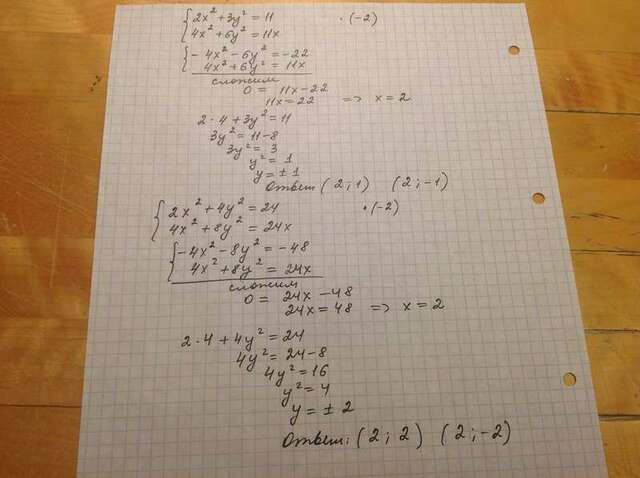 { 2x² + 3y² = 11 · (-2)
4x² + 6y² = 11x
{ -4x² - 6y² = -22
4x² + 6y² = 11x
сложим
0 = 11x - 22
11x = 22 => x = 2
2 · 4 + 3y² = 11
3y² = 11 - 8
3y² = 3
y² = 1
y = ± 1
Ответ (2 ; 1) (2 ; -1)
{ 2x² + 4y² = 24 · (-2)
4x² + 8y² = 24x
{ -4x² - 8y² = -48
4x² + 8y² = 24x
сложим
0 = 24x - 48
24x = 48 => x = 2
2 · 4 + 4y² = 24
4y² = 24 - 8
4y² = 16
y² = 4
y = ± 2
Ответ: (2 ; 2) (2 ; -2)